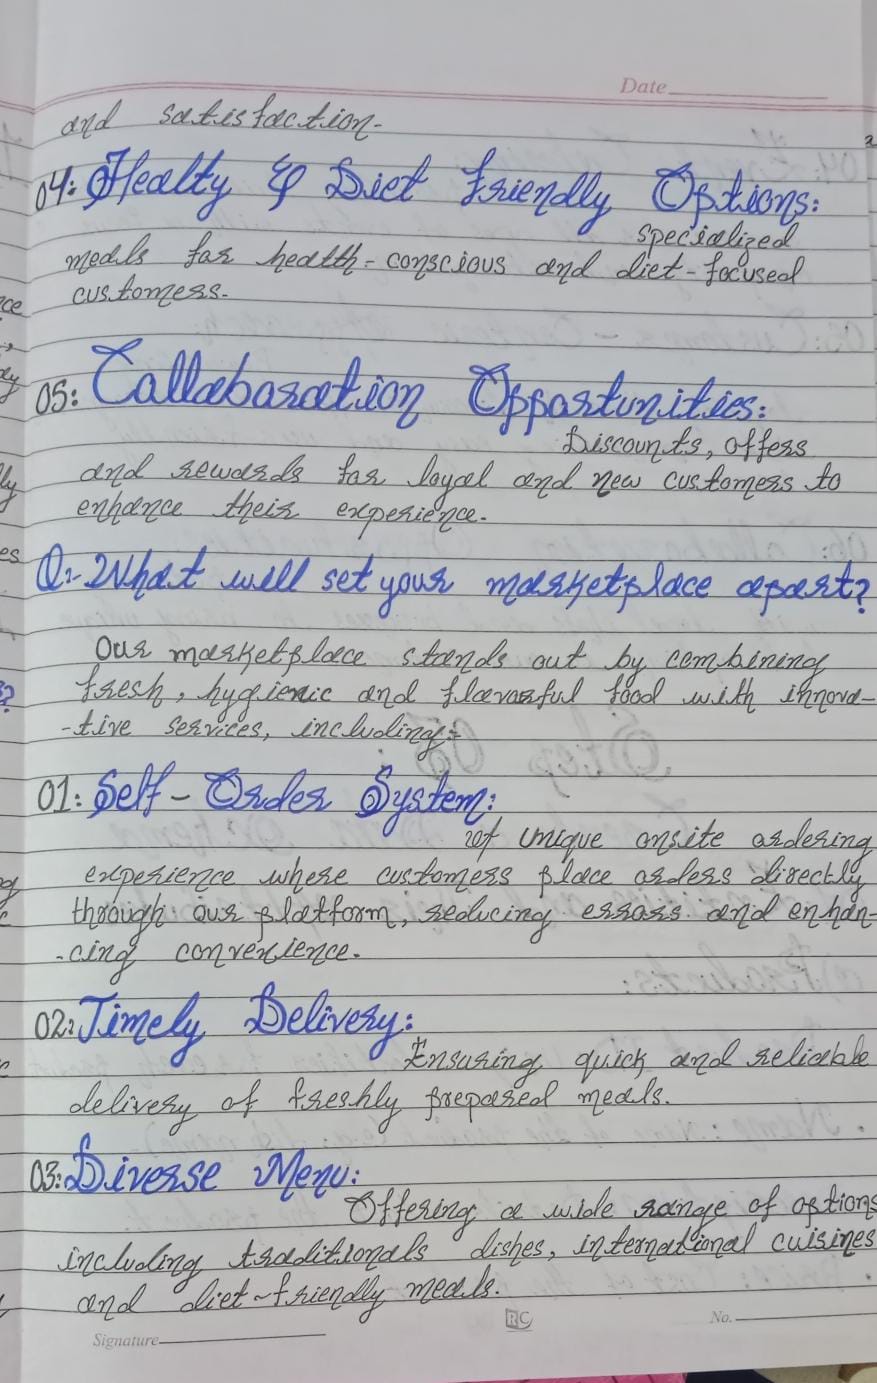 Date
and satisfaction-
04: Healty & Diet Friendly Options:
specialized
meals for health-conscious and diet-focused
customers.
05: Collaboration Opportunities:
Discounts, offers
and rewards for loyal and new customers to
enhance their experience.
Q:- What will set your marketplace apart?
Our marketplace stands out by combining
fresh, hygienic and flavorful food with innova-
-tive services, including:-
01: Self-Order System:
A unique onsite ordering
experience where customers place orders directly
through our platform, reducing errors and enhan-
-cing convenience.
02: Timely Delivery:
Ensuring quick and reliable
delivery of freshly prepared meals.
03: Diverse Menu:
Offering a wide range of options
including traditionals dishes, international cuisines
and diet-friendly meals.
RC
No.
Signature